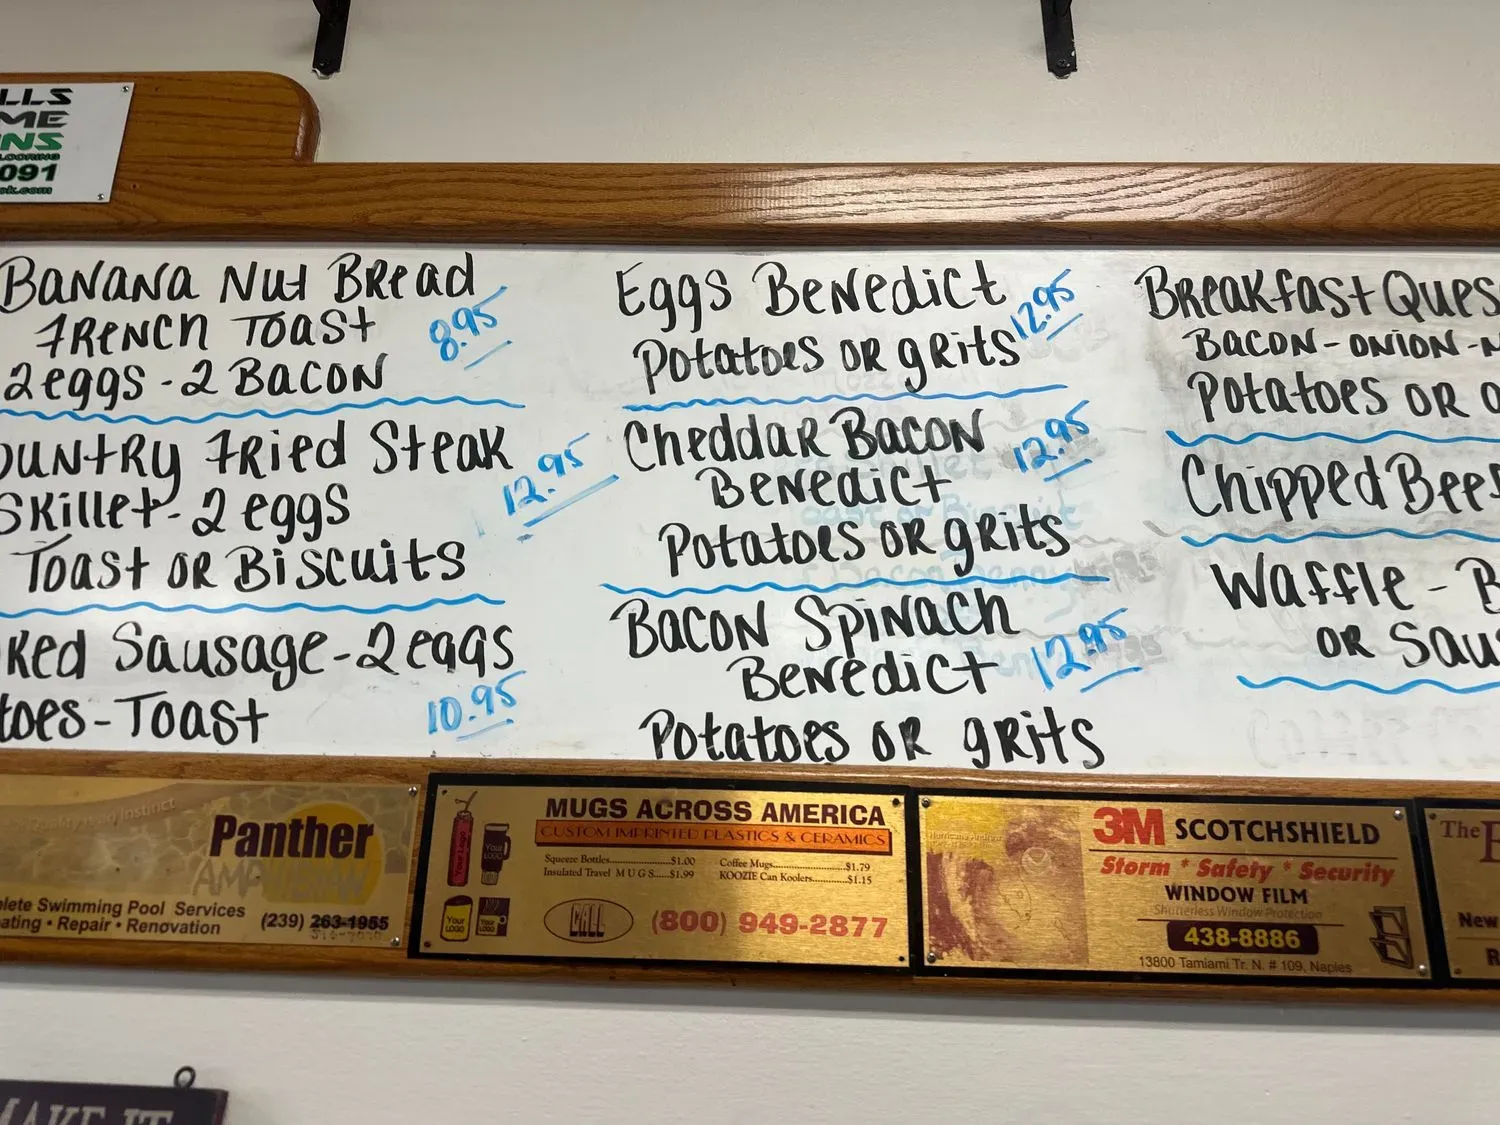 LLS
ME
NS
LOORING
091
ok.com
Banana Nut Bread
French Toast
8.95
2 eggs - 2 Bacon
ountry Fried Steak
Skillet - 2 eggs
12.95
Toast or Biscuits
ked Sausage - 2 eggs
toes - Toast
10.95
Eggs Benedict
12.95
Potatoes or grits
Cheddar Bacon
Benedict
12.95
Potatoes or grits
Bacon Spinach
Benedict
12.95
Potatoes or grits
Breakfast Ques
Bacon - onion -
Potatoes or
Chipped Bee
Waffle - B
or Sau
Quality is an Instinct
Panther
plete Swimming Pool Services
eating • Repair • Renovation
(239) 263-1955
MUGS ACROSS AMERICA
CUSTOM IMPRINTED PLASTICS & CERAMICS
Squeeze Bottles...................$1.00
Insulated Travel M U G S.....$1.99
Coffee Mugs.......................$1.79
KOOZIE Can Koolers...........$1.15
Your Logo
Your LOGO
Your LOGO
CALL
(800) 949-2877
Hurricane Andrew
3M SCOTCHSHIELD
Storm * Safety * Security
WINDOW FILM
Shutterless Window Protection
438-8886
13800 Tamiami Tr. N. # 109, Naples
The
New
R
MAKE IT